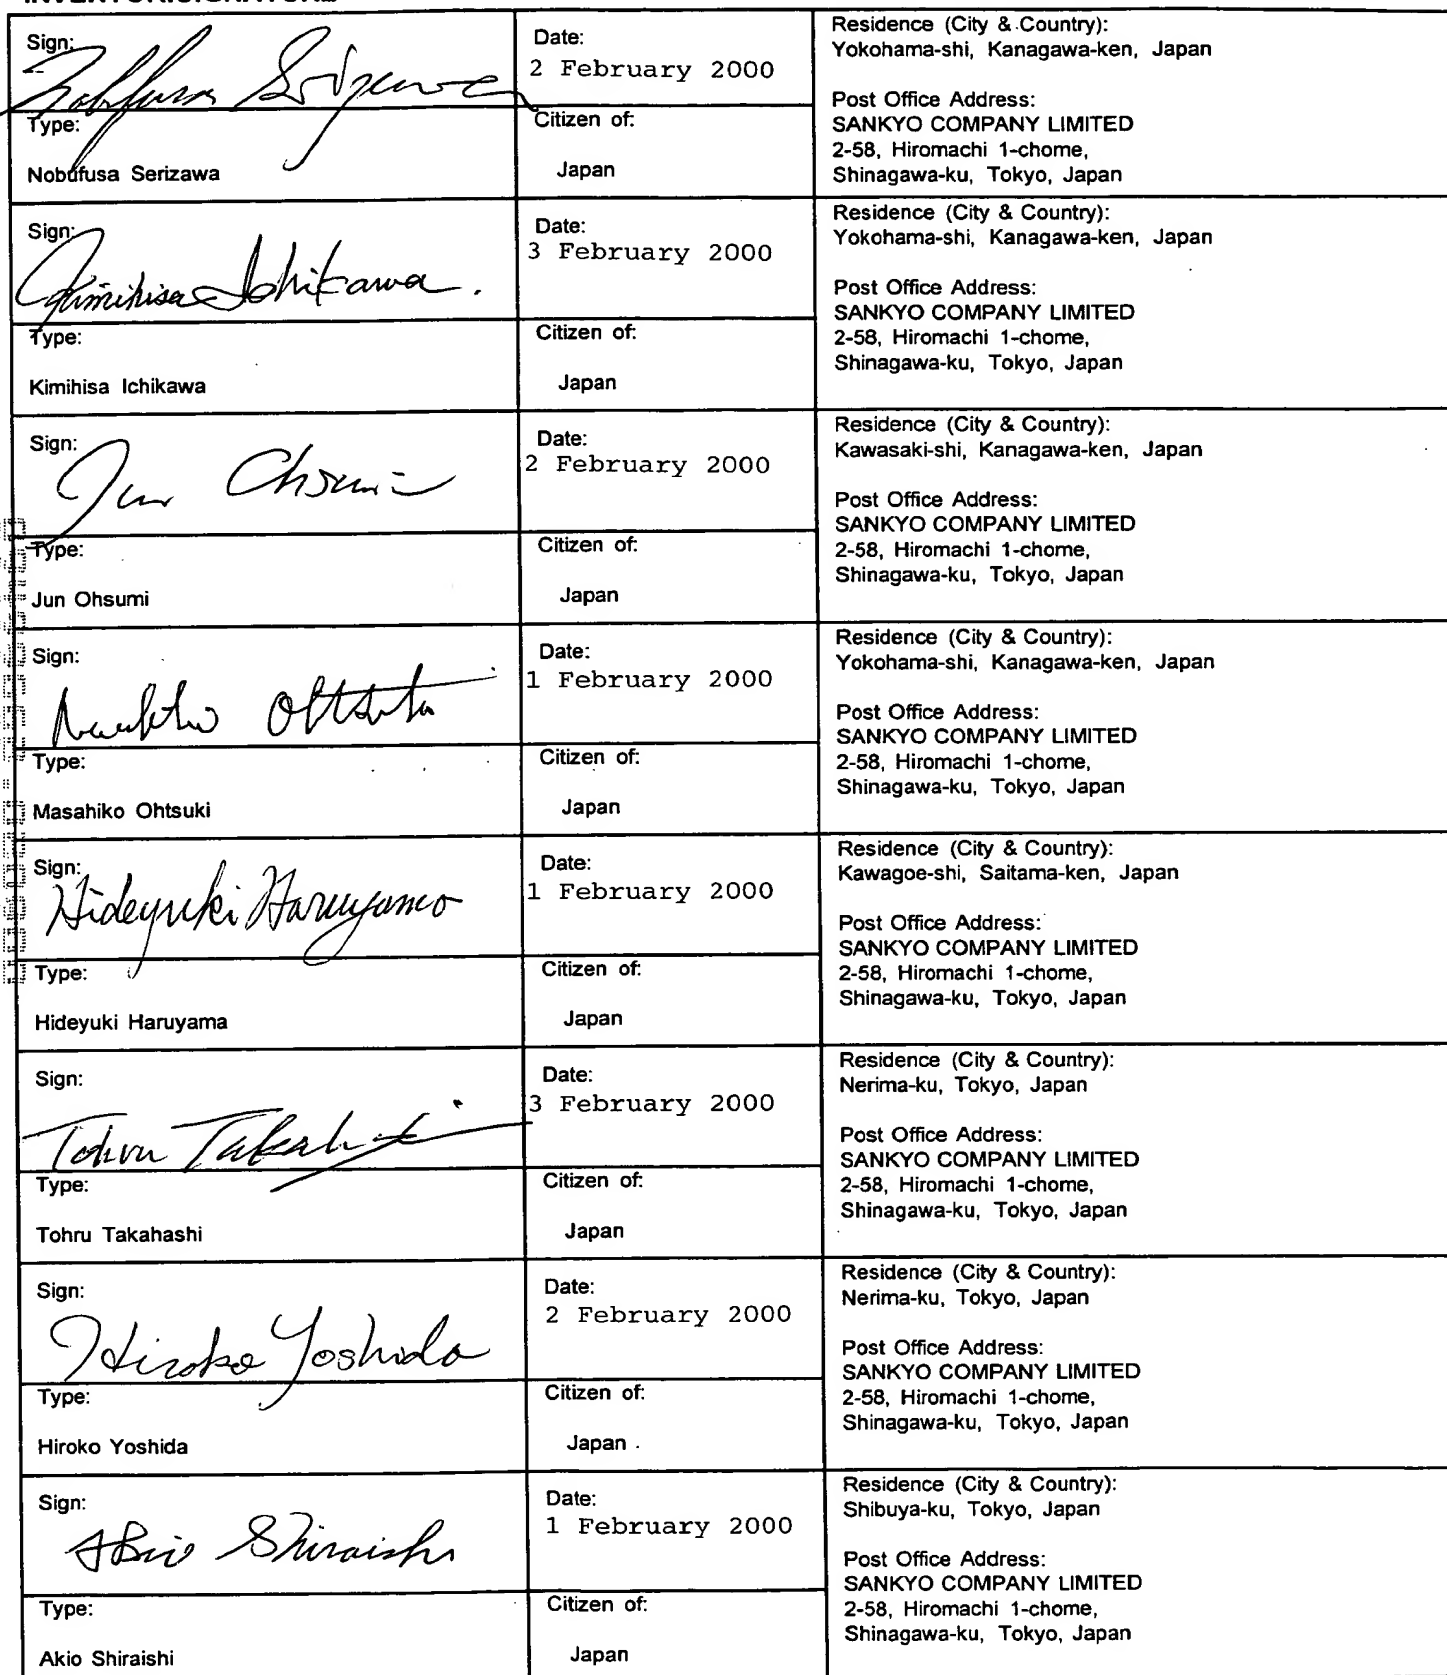 Sign:
Nobufusa Serizawa
Date:
2 February 2000
Residence (City & Country):
Yokohama-shi, Kanagawa-ken, Japan
Post Office Address:
SANKYO COMPANY LIMITED
2-58, Hiromachi 1-chome,
Shinagawa-ku, Tokyo, Japan
Type:
Nobufusa Serizawa
Citizen of:
Japan
Sign:
Kimihisa Ichikawa.
Date:
3 February 2000
Residence (City & Country):
Yokohama-shi, Kanagawa-ken, Japan
Post Office Address:
SANKYO COMPANY LIMITED
2-58, Hiromachi 1-chome,
Shinagawa-ku, Tokyo, Japan
Type:
Kimihisa Ichikawa
Citizen of:
Japan
Sign:
Jun Ohsumi
Date:
2 February 2000
Residence (City & Country):
Kawasaki-shi, Kanagawa-ken, Japan
Post Office Address:
SANKYO COMPANY LIMITED
2-58, Hiromachi 1-chome,
Shinagawa-ku, Tokyo, Japan
Type:
Jun Ohsumi
Citizen of:
Japan
Sign:
Masahiko Ohtsuki
Date:
1 February 2000
Residence (City & Country):
Yokohama-shi, Kanagawa-ken, Japan
Post Office Address:
SANKYO COMPANY LIMITED
2-58, Hiromachi 1-chome,
Shinagawa-ku, Tokyo, Japan
Type:
Masahiko Ohtsuki
Citizen of:
Japan
Sign:
Hideyuki Haruyama
Date:
1 February 2000
Residence (City & Country):
Kawagoe-shi, Saitama-ken, Japan
Post Office Address:
SANKYO COMPANY LIMITED
2-58, Hiromachi 1-chome,
Shinagawa-ku, Tokyo, Japan
Type:
Hideyuki Haruyama
Citizen of:
Japan
Sign:
Tohru Takahashi
Date:
3 February 2000
Residence (City & Country):
Nerima-ku, Tokyo, Japan
Post Office Address:
SANKYO COMPANY LIMITED
2-58, Hiromachi 1-chome,
Shinagawa-ku, Tokyo, Japan
Type:
Tohru Takahashi
Citizen of:
Japan
Sign:
Hiroko Yoshida
Date:
2 February 2000
Residence (City & Country):
Nerima-ku, Tokyo, Japan
Post Office Address:
SANKYO COMPANY LIMITED
2-58, Hiromachi 1-chome,
Shinagawa-ku, Tokyo, Japan
Type:
Hiroko Yoshida
Citizen of:
Japan
Sign:
Akio Shiraishi
Date:
1 February 2000
Residence (City & Country):
Shibuya-ku, Tokyo, Japan
Post Office Address:
SANKYO COMPANY LIMITED
2-58, Hiromachi 1-chome,
Shinagawa-ku, Tokyo, Japan
Type:
Akio Shiraishi
Citizen of:
Japan